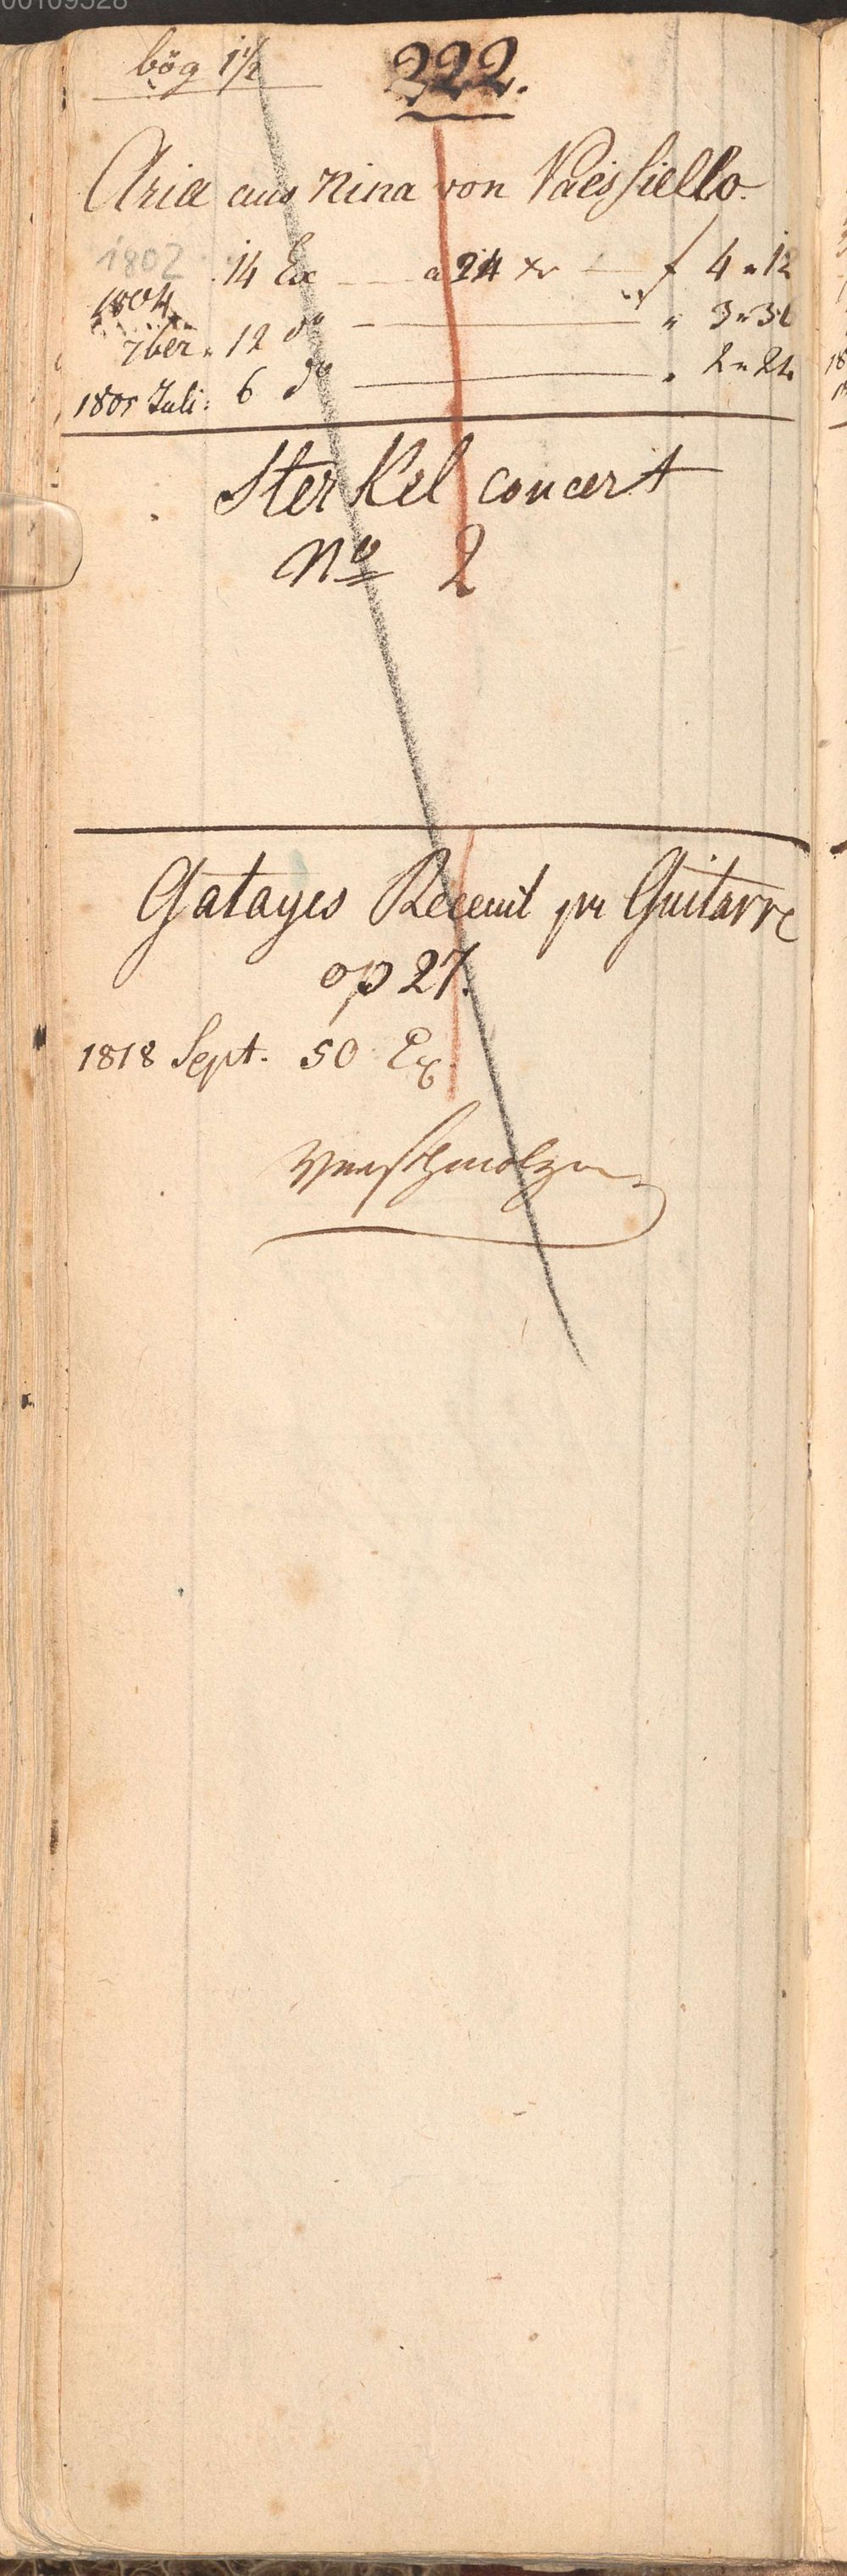 00109528
bög 1½
222.
Aria aus Nina von Paeissiello.
1802 14 Ex a 24 xr f 4 " 12
1804
7ber " 12 do " 3 " 36
1805 Juli: 6 do " 2 " 24
Sterkel concert
No 2
Gatayes Receuil pr Guitarre
op 27.
1818 Sept. 50 Ex.
Verschmolzen